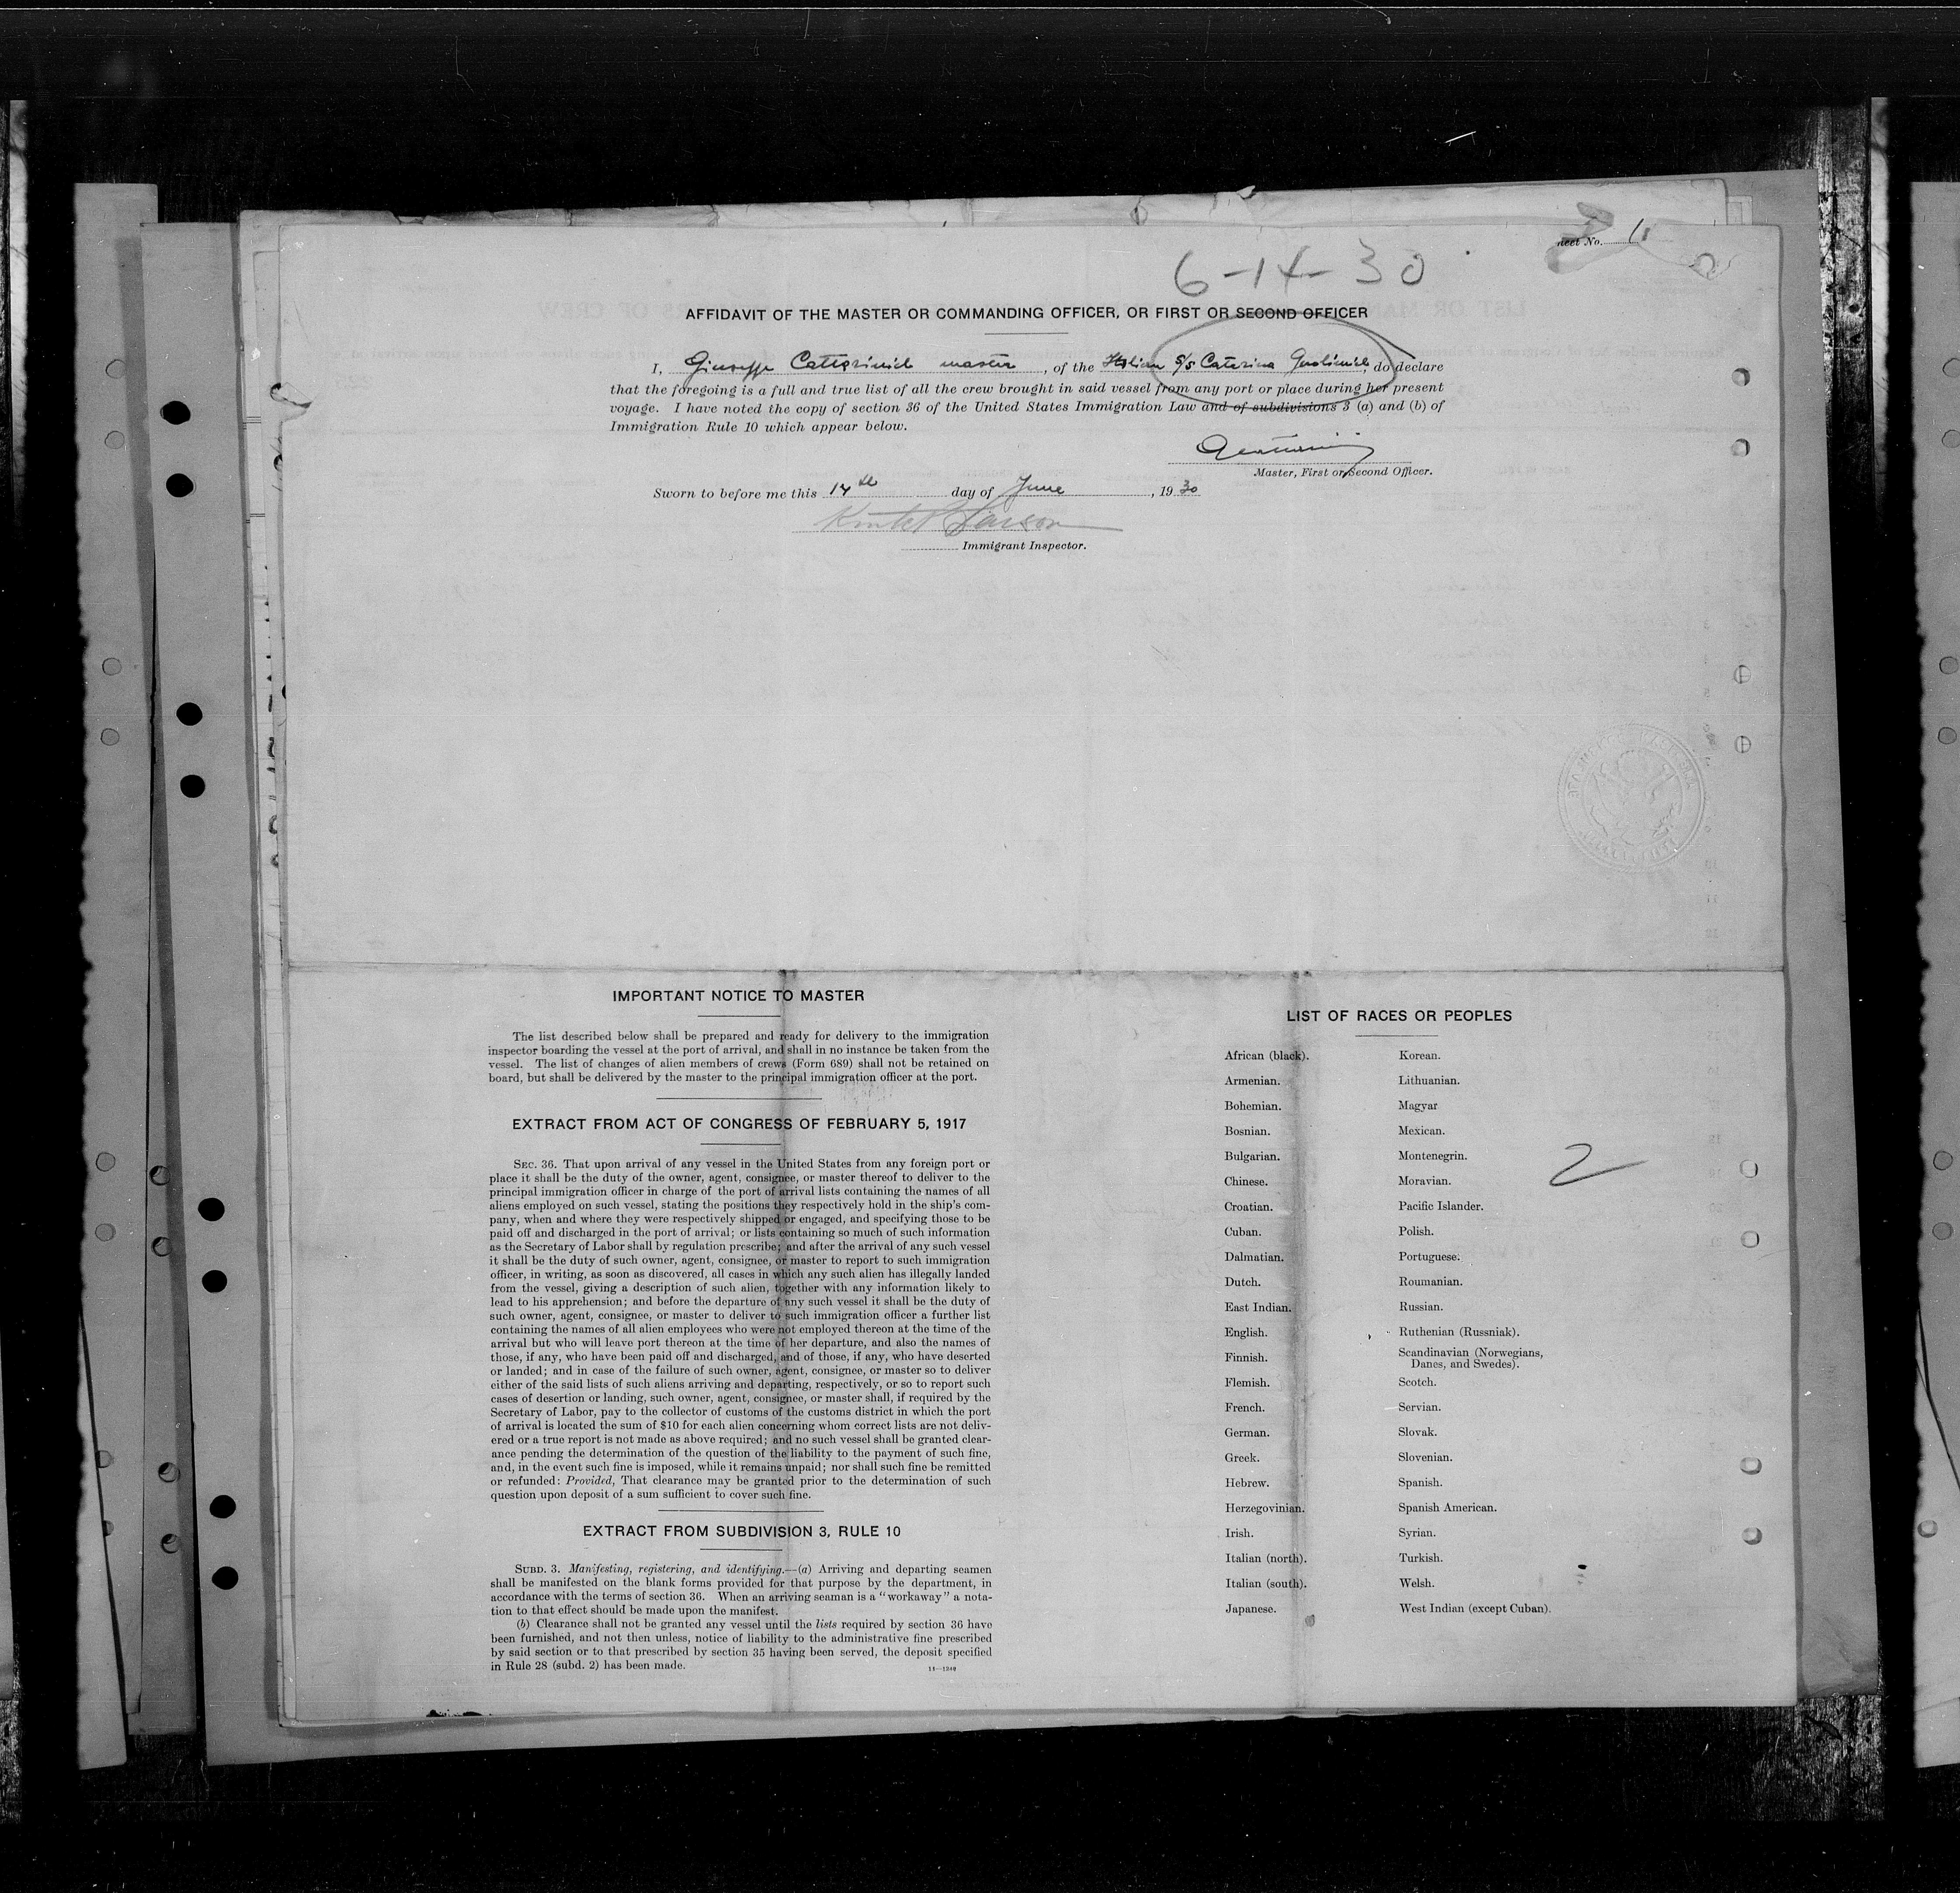 neet No.
6-14-30
AFFIDAVIT OF THE MASTER OR COMMANDING OFFICER, OR FIRST OR SECOND OFFICER
I, Giuseppe Catterinich master, of the Italian S/s Caterina, do declare
that the foregoing is a full and true list of all the crew brought in said vessel from any port or place during her present
voyage. I have noted the copy of section 36 of the United States Immigration Law and of subdivisions 3 (a) and (b) of
Immigration Rule 10 which appear below.
Master, First or Second Officer.
Sworn to before me this 14th day of June, 1930
Larson
Immigrant Inspector.
IMPORTANT NOTICE TO MASTER
The list described below shall be prepared and ready for delivery to the immigration
inspector boarding the vessel at the port of arrival, and shall in no instance be taken from the
vessel. The list of changes of alien members of crews (Form 689) shall not be retained on
board, but shall be delivered by the master to the principal immigration officer at the port.
EXTRACT FROM ACT OF CONGRESS OF FEBRUARY 5, 1917
SEC. 36. That upon arrival of any vessel in the United States from any foreign port or
place it shall be the duty of the owner, agent, consignee, or master thereof to deliver to the
principal immigration officer in charge of the port of arrival lists containing the names of all
aliens employed on such vessel, stating the positions they respectively hold in the ship's com-
pany, when and where they were respectively shipped or engaged, and specifying those to be
paid off and discharged in the port of arrival; or lists containing so much of such information
as the Secretary of Labor shall by regulation prescribe; and after the arrival of any such vessel
it shall be the duty of such owner, agent, consignee, or master to report to such immigration
officer, in writing, as soon as discovered, all cases in which any such alien has illegally landed
from the vessel, giving a description of such alien, together with any information likely to
lead to his apprehension; and before the departure of any such vessel it shall be the duty of
such owner, agent, consignee, or master to deliver to such immigration officer a further list
containing the names of all alien employees who were not employed thereon at the time of the
arrival but who will leave port thereon at the time of her departure, and also the names of
those, if any, who have been paid off and discharged, and of those, if any, who have deserted
or landed; and in case of the failure of such owner, agent, consignee, or master so to deliver
either of the said lists of such aliens arriving and departing, respectively, or so to report such
cases of desertion or landing, such owner, agent, consignee, or master shall, if required by the
Secretary of Labor, pay to the collector of customs of the customs district in which the port
of arrival is located the sum of $10 for each alien concerning whom correct lists are not deliv-
ered or a true report is not made as above required; and no such vessel shall be granted clear-
ance pending the determination of the question of the liability to the payment of such fine,
and, in the event such fine is imposed, while it remains unpaid; nor shall such fine be remitted
or refunded: Provided, That clearance may be granted prior to the determination of such
question upon deposit of a sum sufficient to cover such fine.
EXTRACT FROM SUBDIVISION 3, RULE 10
SUBD. 3. Manifesting, registering, and identifying.—(a) Arriving and departing seamen
shall be manifested on the blank forms provided for that purpose by the department, in
accordance with the terms of section 36. When an arriving seaman is a "workaway" a nota-
tion to that effect should be made upon the manifest.
(b) Clearance shall not be granted any vessel until the lists required by section 36 have
been furnished, and not then unless, notice of liability to the administrative fine prescribed
by said section or to that prescribed by section 35 having been served, the deposit specified
in Rule 28 (subd. 2) has been made.
11—1240
LIST OF RACES OR PEOPLES
African (black).
Armenian.
Bohemian.
Bosnian.
Bulgarian.
Chinese.
Croatian.
Cuban.
Dalmatian.
Dutch.
East Indian.
English.
Finnish.
Flemish.
French.
German.
Greek.
Hebrew.
Herzegovinian.
Irish.
Italian (north).
Italian (south).
Japanese.
Korean.
Lithuanian.
Magyar
Mexican.
Montenegrin.
Moravian.
Pacific Islander.
Polish.
Portuguese.
Roumanian.
Russian.
Ruthenian (Russniak).
Scandinavian (Norwegians,
Danes, and Swedes).
Scotch.
Servian.
Slovak.
Slovenian.
Spanish.
Spanish American.
Syrian.
Turkish.
Welsh.
West Indian (except Cuban).
2